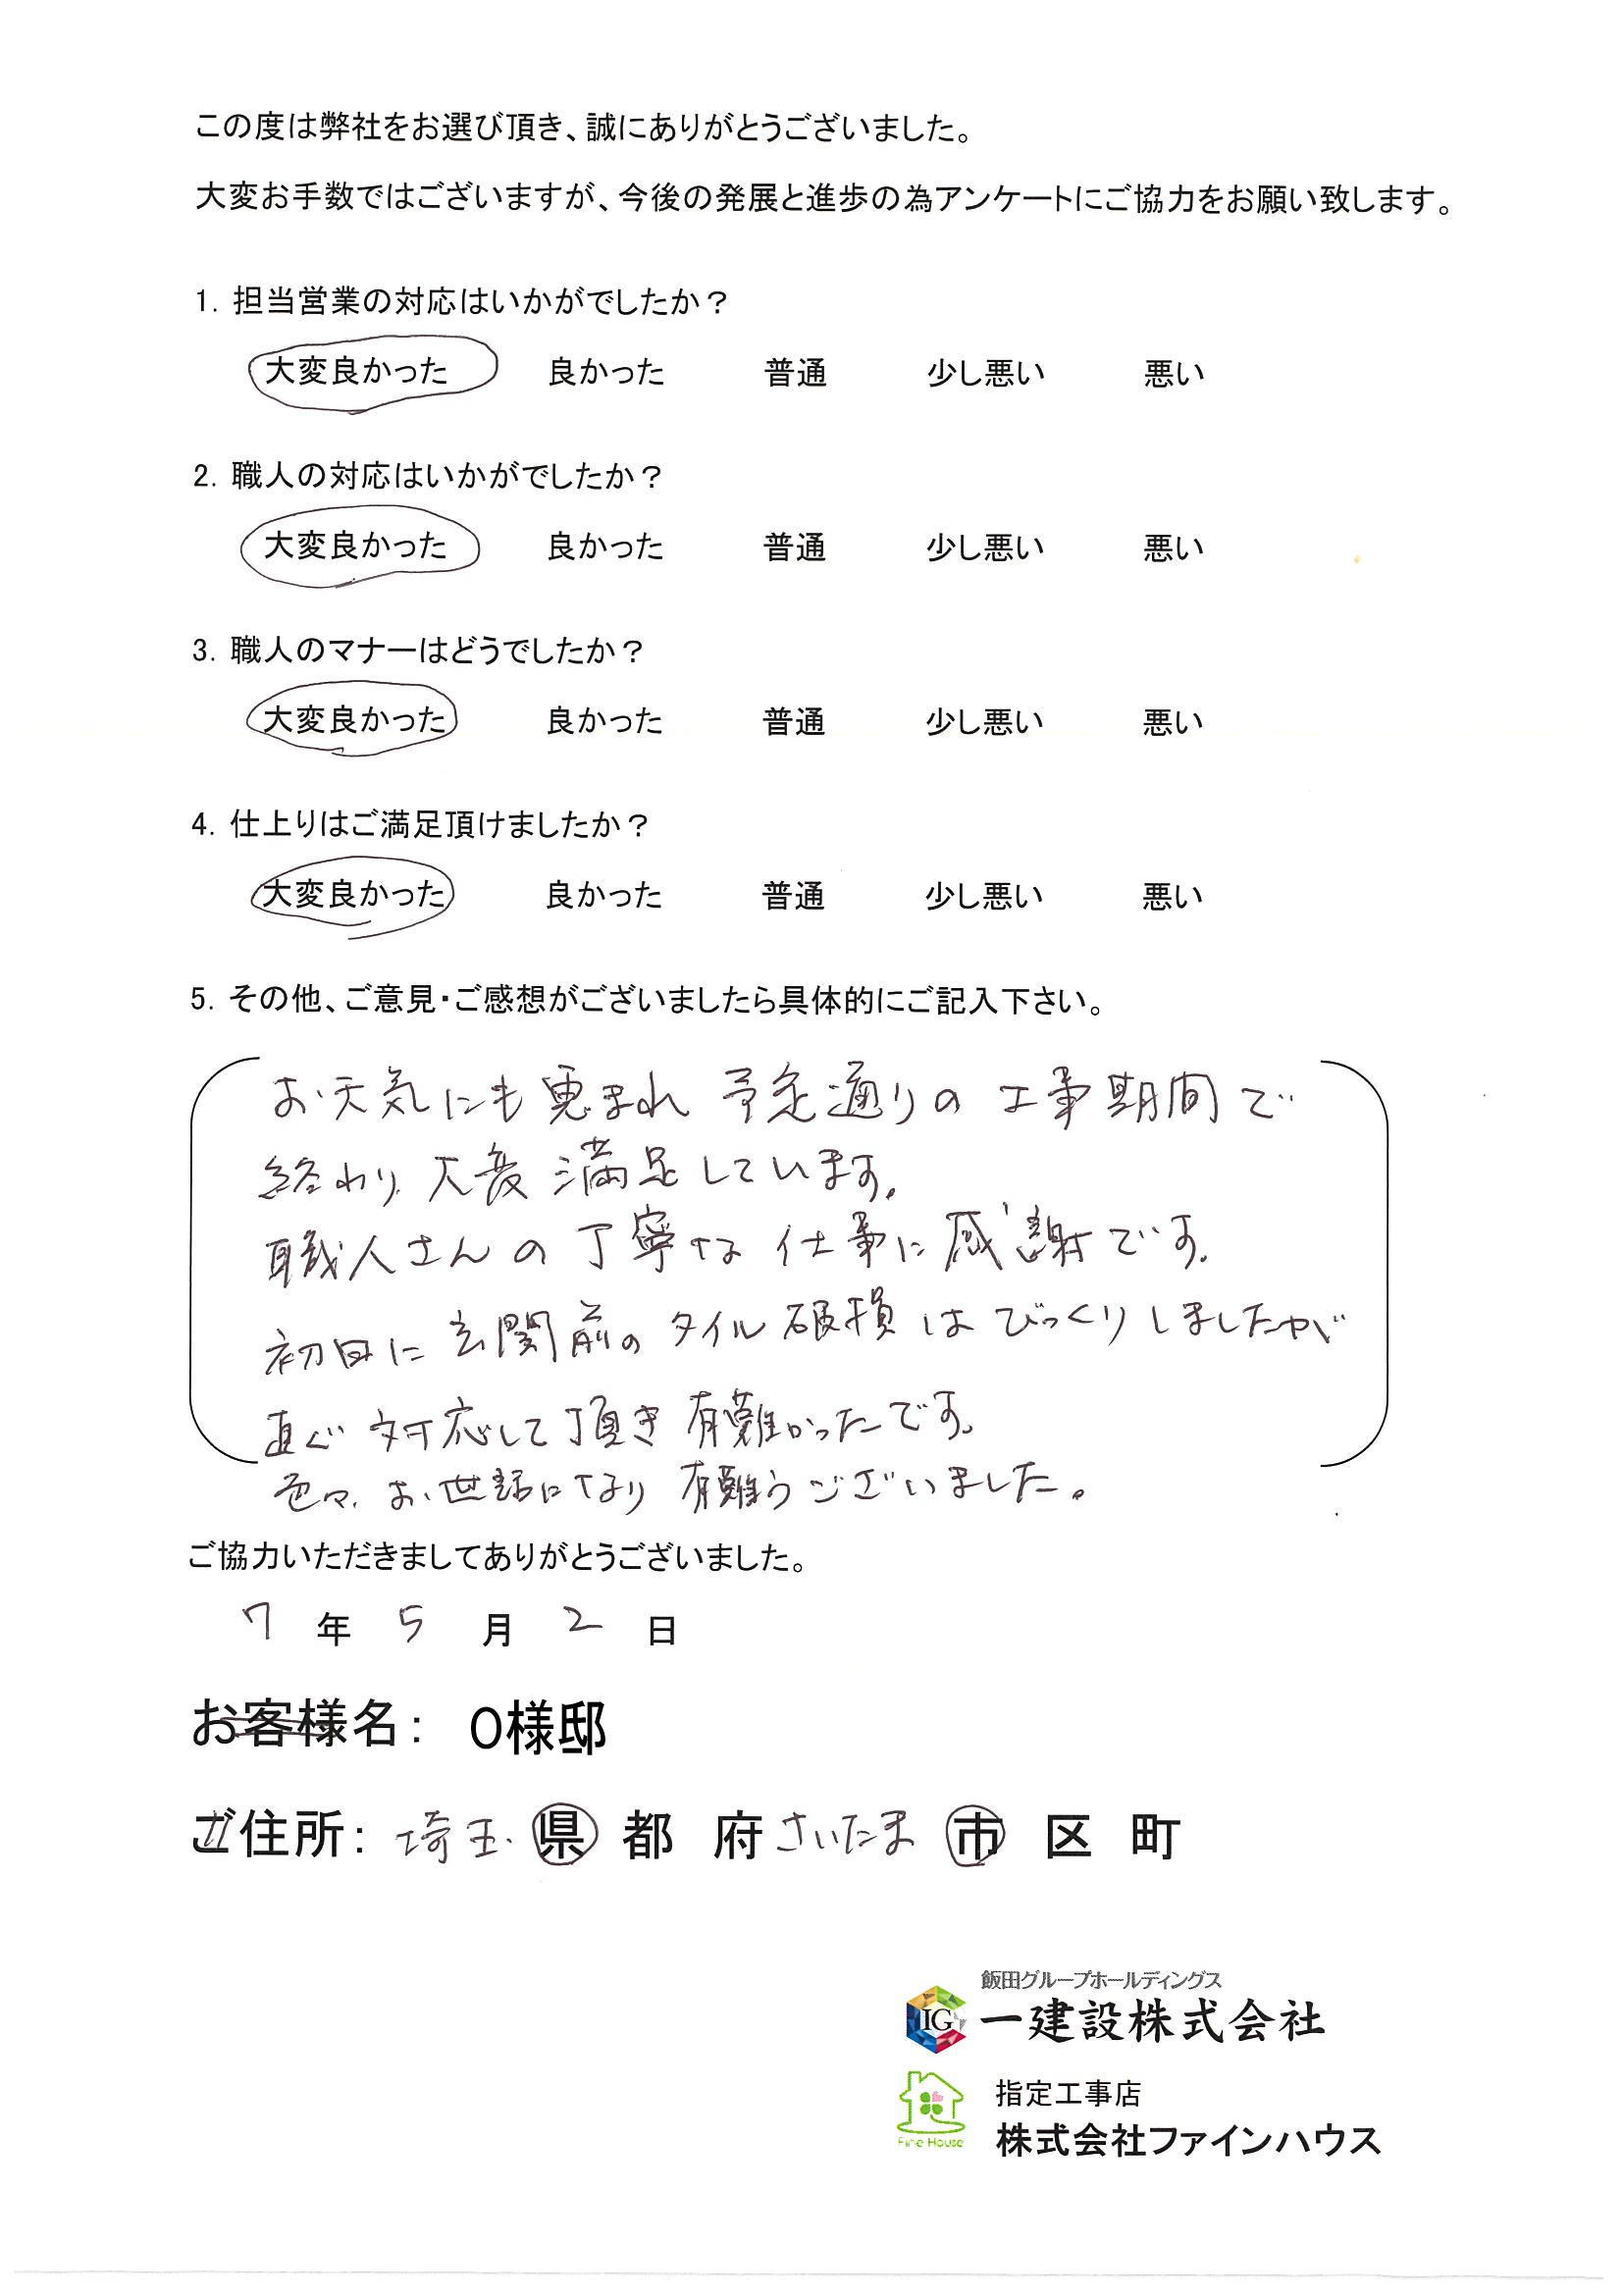 この度は弊社をお選び頂き、誠にありがとうございました。
大変お手数ではございますが、今後の発展と進歩の為アンケートにご協力をお願い致します。
1. 担当営業の対応はいかがでしたか？
大変良かった 良かった 普通 少し悪い 悪い
2. 職人の対応はいかがでしたか？
大変良かった 良かった 普通 少し悪い 悪い
3. 職人のマナーはどうでしたか？
大変良かった 良かった 普通 少し悪い 悪い
4. 仕上りはご満足頂けましたか？
大変良かった 良かった 普通 少し悪い 悪い
5. その他、ご意見・ご感想がございましたら具体的にご記入下さい。
お天気にも恵まれ 予定通りの 工事期間で
終わり 大変 満足しています。
職人さんの丁寧な 仕事に 感謝です。
初日に 玄関前の タイル 破損は びっくりしましたが
直ぐ 対応して頂き 有難かったです。
色々、お世話になり 有難うございました。
ご協力いただきましてありがとうございました。
7 年 5 月 2 日
お客様名： O様邸
ご住所： 埼玉 県 都 府 さいたま 市 区 町
飯田グループホールディングス
IG 一建設株式会社
指定工事店
Fine House 株式会社ファインハウス